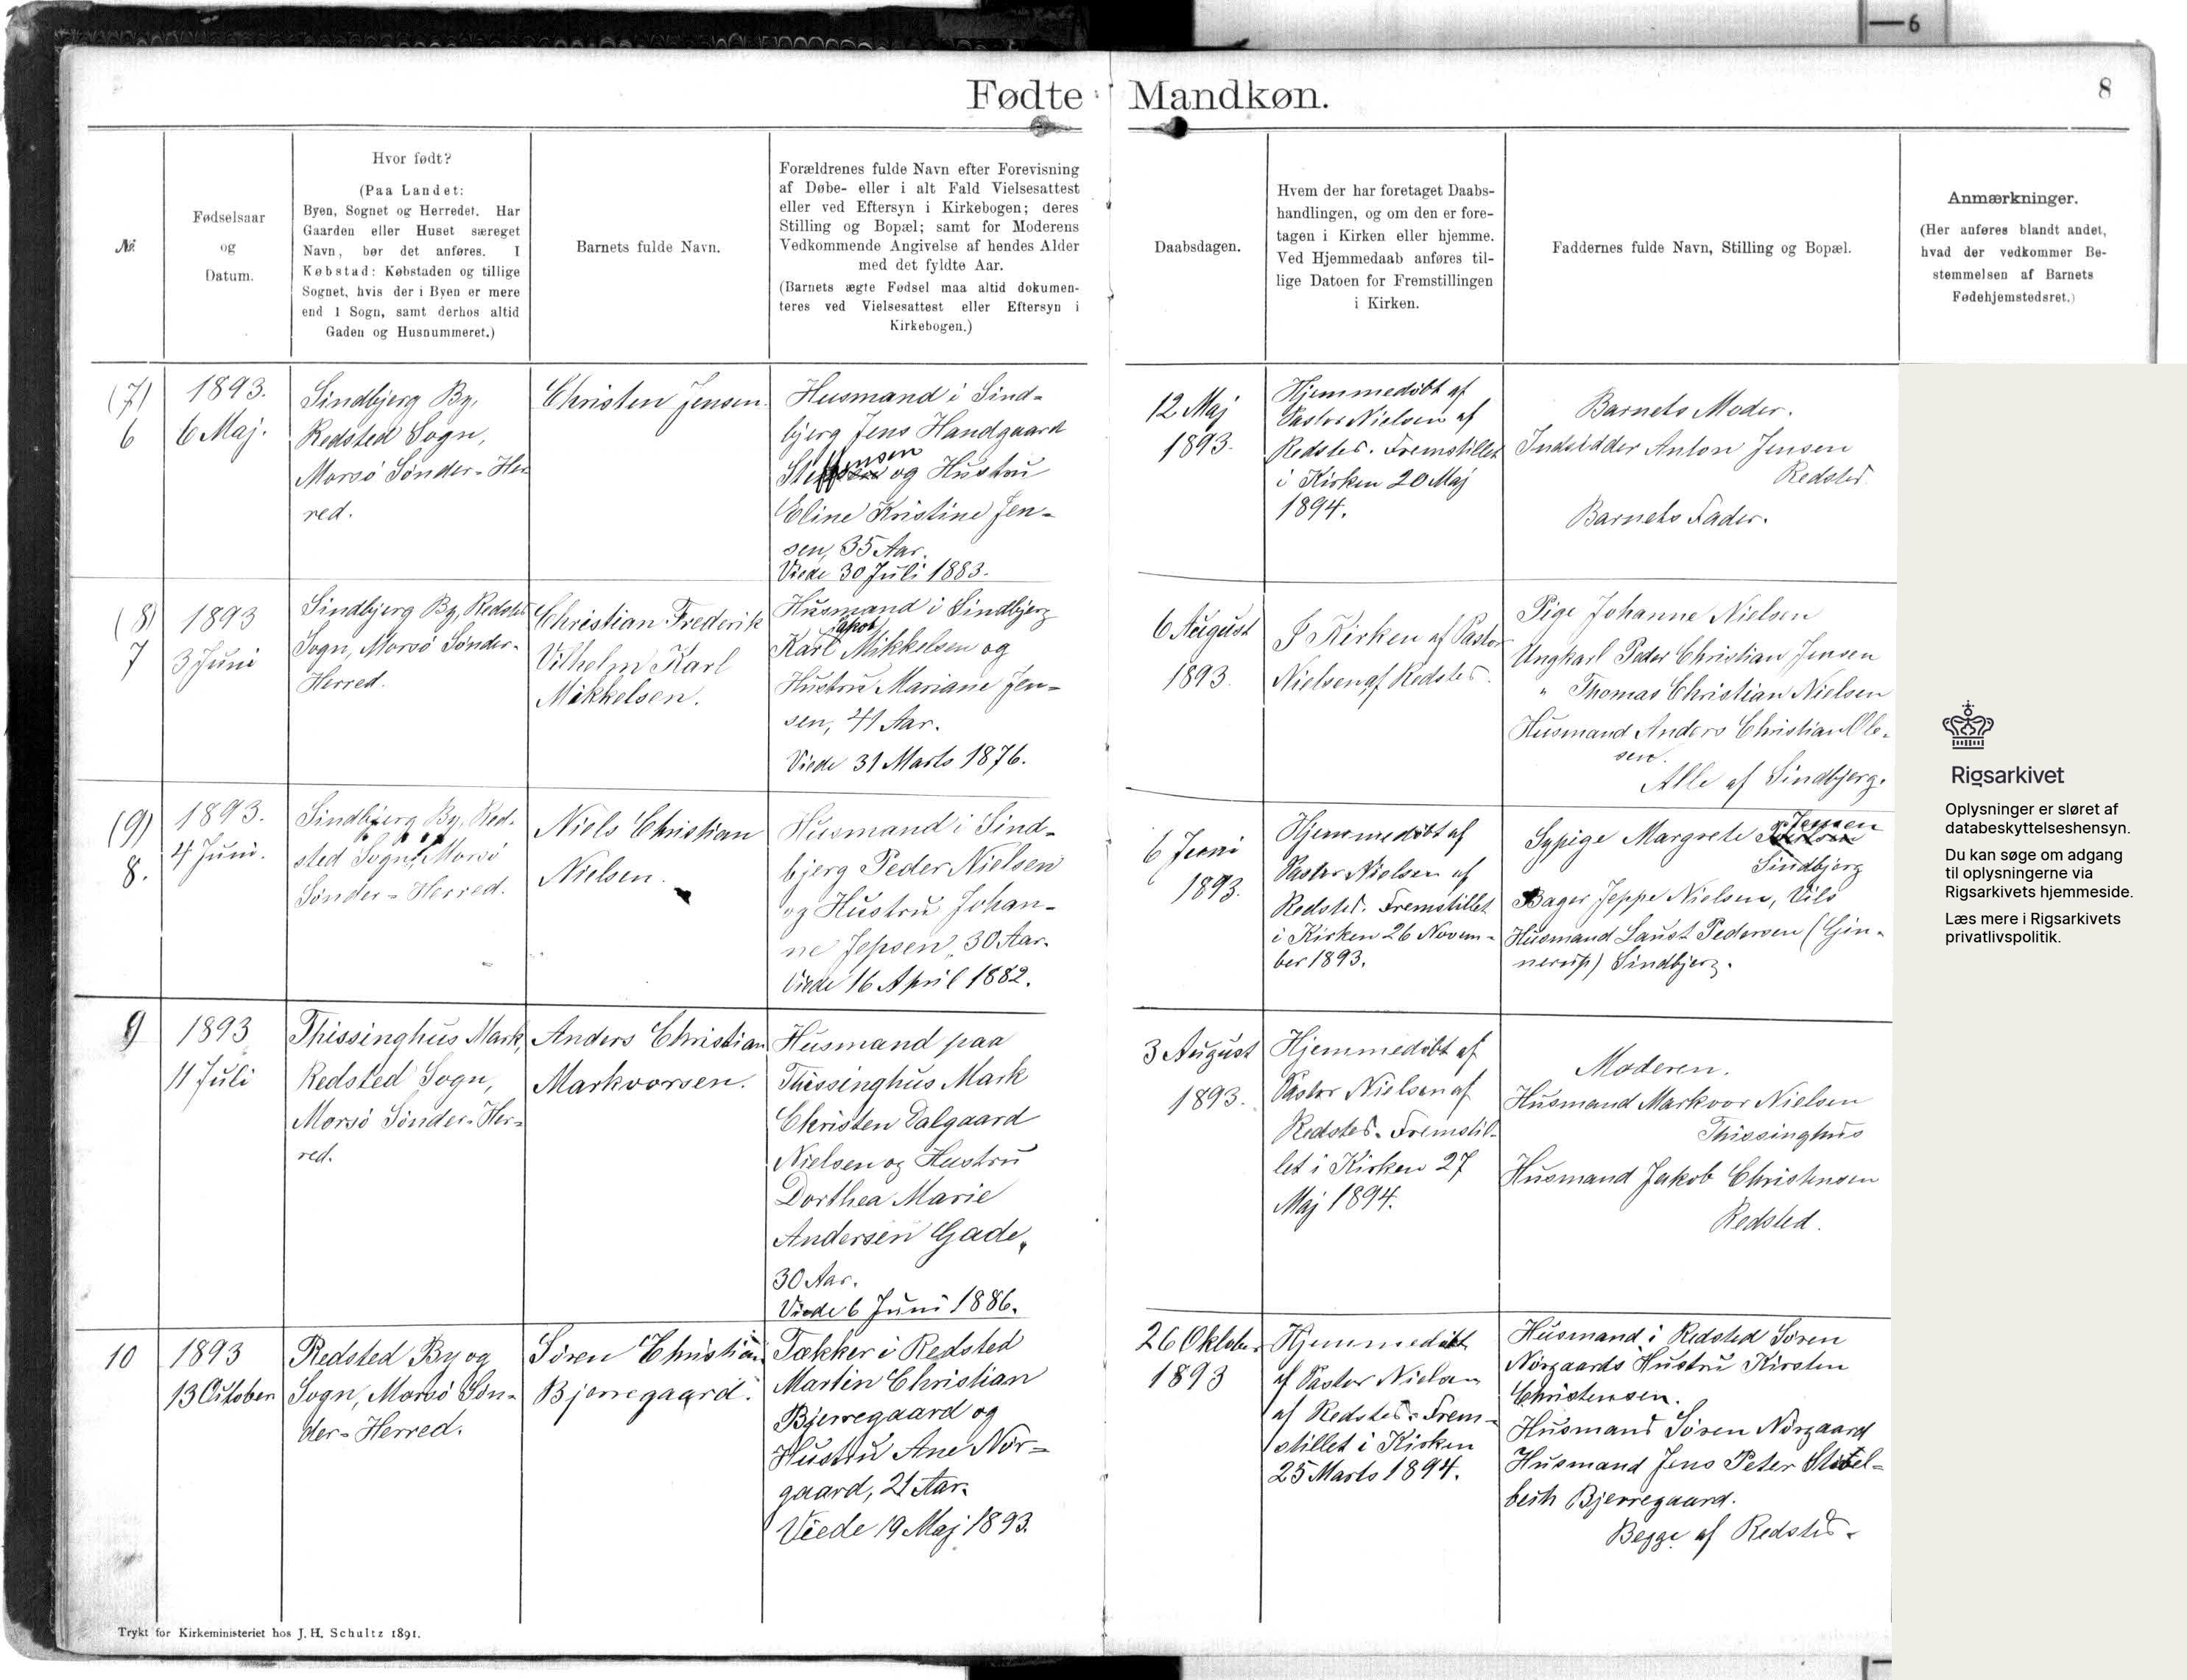 6
Fødte Mandkøn.
8
№
Fødselsaar
og
Datum.
Hvor født?
(Paa Landet:
Byen, Sognet og Herredet. Har
Gaarden eller Huset særeget
Navn, bør det anføres. I
Købstad: Købstaden og tillige
Sognet, hvis der i Byen er mere
end 1 Sogn, samt derhos altid
Gaden og Husnummeret.)
Barnets fulde Navn.
Forældrenes fulde Navn efter Forevisning
af Døbe- eller i alt Fald Vielsesattest
eller ved Eftersyn i Kirkebogen; deres
Stilling og Bopæl; samt for Moderens
Vedkommende Angivelse af hendes Alder
med det fyldte Aar.
(Barnets ægte Fødsel maa altid dokumen-
teres ved Vielsesattest eller Eftersyn i
Kirkebogen.)
Daabsdagen.
Hvem der har foretaget Daabs-
handlingen, og om den er fore-
tagen i Kirken eller hjemme.
Ved Hjemmedaab anføres til-
lige Datoen for Fremstillingen
i Kirken.
Faddernes fulde Navn, Stilling og Bopæl.
Anmærkninger.
(Her anføres blandt andet,
hvad der vedkommer Be-
stemmelsen af Barnets
Fødehjemstedsret.)
(7)
6
1893.
6 Maj.
Sindbjerg By,
Redsted Sogn,
Morsö Sönder-Her
red.
Christen Jensen.
Husmand i Sind-
bjerg Jens Handgaard
Steffensen og Hustru
Eline Kristine Jen-
sen, 35 Aar.
Viede 30 Juli 1883.
12 Maj
1893.
Hjemmedöbt af
Pastor Nielsen af
Redsted. Fremstillet
i Kirken 20 Maj
1894.
Barnets Moder.
Indsidder Anton Jensen
Redsted
Barnets Fader.
(8)
7
1893
3 Juni
Sindbjerg By, Redsted
Sogn, Morsö Sönder-
Herred.
Christian Frederik
Vilhelm Karl
Mikkelsen.
Husmand i Sindbjerg
Jakob
Karl Mikkelsen og
Hustru Mariane Jen-
sen, 41 Aar.
Viede 31 Marts 1876.
6 August
1893.
I Kirken af Pastor
Nielsen af Redsted.
Pige Johanne Nielsen
Ungkarl Peder Christian Jensen
" Thomas Christian Nielsen
Husmand Anders Christian Ole-
sen.
Alle af Sindbjerg.
(9)
8.
1893.
4 Juni.
Sindbjerg By, Red-
sted Sogn, Morsö
Sönder-Herred.
Niels Christian
Nielsen.
Husmand i Sind-
bjerg Peder Nielsen
og Hustru Johan-
ne Jepsen, 30 Aar.
Viede 16 April 1882.
6 Juni
1893.
Hjemmedöbt af
Pastor Nielsen af
Redsted. Fremstillet
i Kirken 26 Novem-
ber 1893.
Sypige Margrete Jensen
Sindbjerg
Bager Jeppe Nielsen, Vils
Husmand Laust Pedersen (Gin-
nerup) Sindbjerg.
9
1893
11 Juli
Thissinghus Mark,
Redsted Sogn,
Morsö Sönder-Her-
red.
Anders Christian
Markvorsen.
Husmand paa
Thissinghus Mark
Christen Dalgaard
Nielsen og Hustru
Dorthea Marie
Andersen Gade,
30 Aar.
Viede 6 Juni 1886.
3 August
1893.
Hjemmedöbt af
Pastor Nielsen af
Redsted. Fremstil-
let i Kirken 27
Maj 1894.
Moderen.
Husmand Markvor Nielsen
Thissinghus
Husmand Jakob Christensen
Redsted.
10
1893
13 October
Redsted By og
Sogn, Morsö Sön-
der-Herred.
Sören Christian
Bjerregaard.
Tækker i Redsted
Martin Christian
Bjerregaard og
Hustru Ane Nör-
gaard, 21 Aar.
Viede 19 Maj 1893.
26 Oktober
1893
Hjemmedöbt
af Pastor Nielsen
af Redsted. Frem-
stillet i Kirken
25 Marts 1894.
Husmand i Redsted Sören
Nörgaards Hustru Kirsten
Christensen.
Husmand Sören Nörgaard
Husmand Jens Peter
Bjerregaard.
Begge af Redsted.
Trykt for Kirkeministeriet hos J. H. Schultz 1891.
Rigsarkivet
Oplysninger er sløret af
databeskyttelseshensyn.
Du kan søge om adgang
til oplysningerne via
Rigsarkivets hjemmeside.
Læs mere i Rigsarkivets
privatlivspolitik.